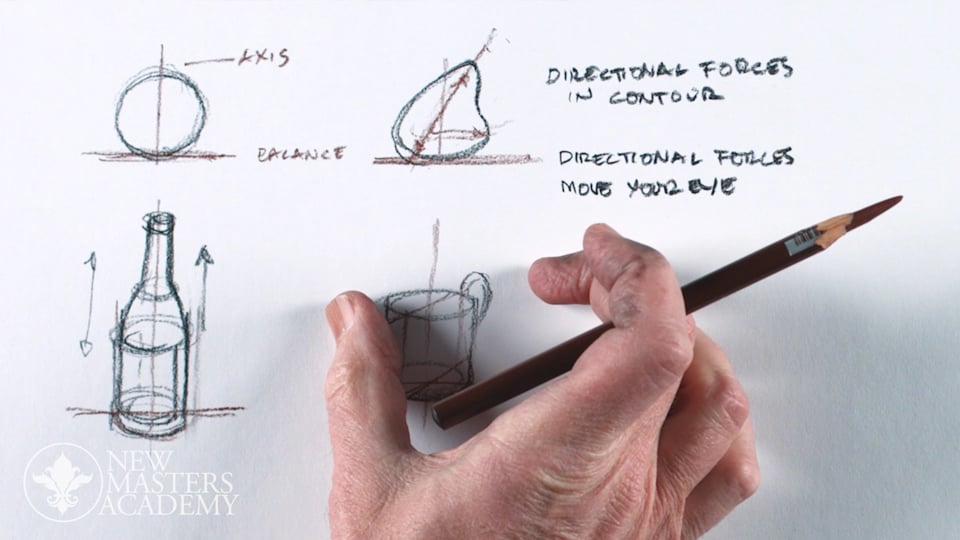 AXIS
DIRECTIONAL FORCES
IN CONTOUR
BALANCE
DIRECTIONAL FORCES
MOVE YOUR EYE
NEW
MASTERS
ACADEMY